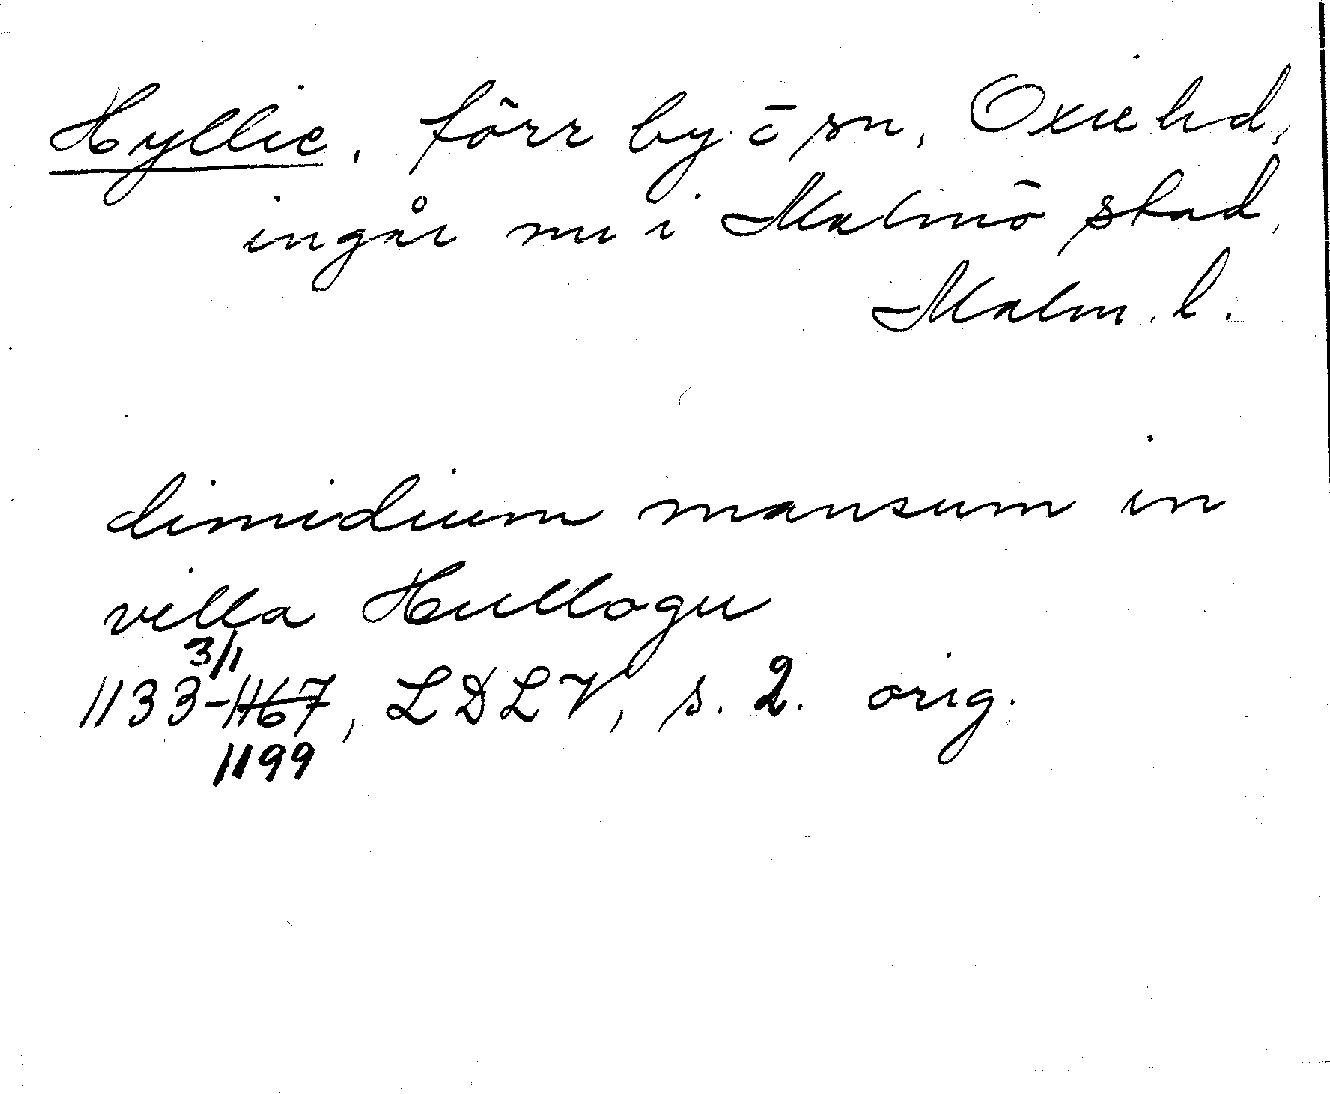 Hyllie, förr by o sn, Oxie hd,
ingår nu i Malmö stad,
Malm. l.
dimidium mansum in
villa Hullogu
3/1
1133-1167, LDLV, s. 2. orig.
1199